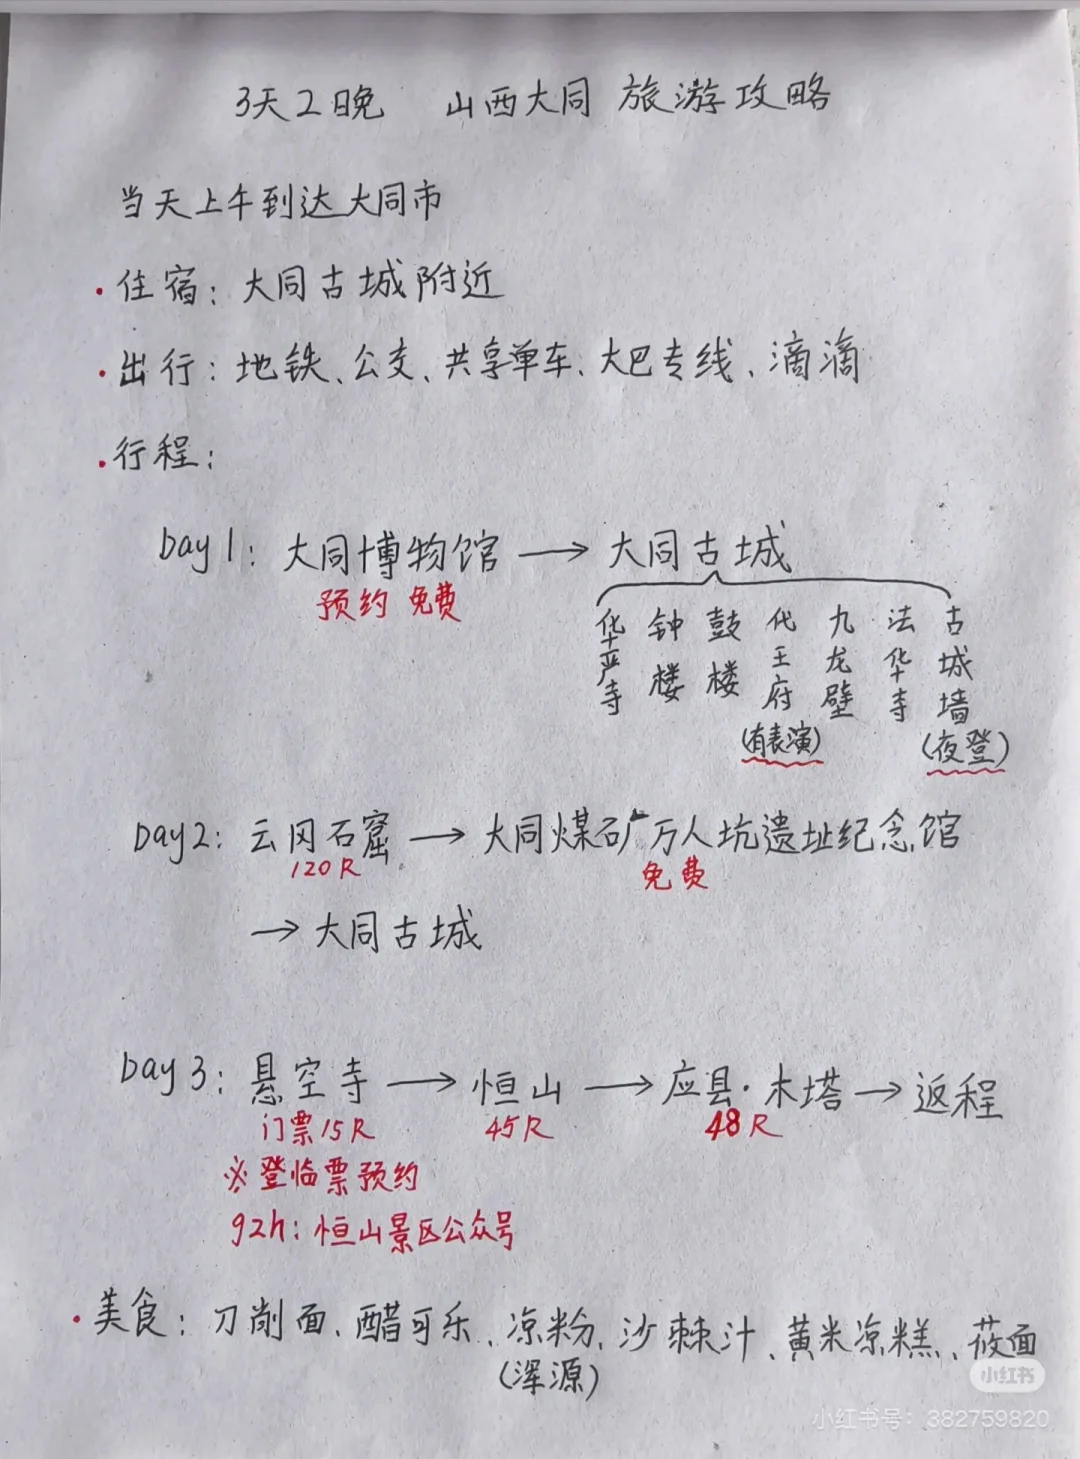 3天2晚 山西大同 旅游攻略
当天上午到达大同市
· 住宿: 大同古城附近
· 出行: 地铁、公交、共享单车、大巴专线、滴滴
· 行程:
Day1: 大同博物馆 → 大同古城
预约 免费
华严寺 钟楼 鼓楼 代王府 九龙壁 法华寺 古城墙
(有表演) (夜登)
Day2: 云冈石窟 → 大同煤矿万人坑遗址纪念馆
120R 免费
→ 大同古城
Day3: 悬空寺 → 恒山 → 应县·木塔 → 返程
门票15R 45R 48R
※登临票预约
gzh: 恒山景区公众号
· 美食: 刀削面、醋可乐、凉粉、沙棘汁、黄米凉糕、莜面
(浑源)
小红书
小红书号: 382759820